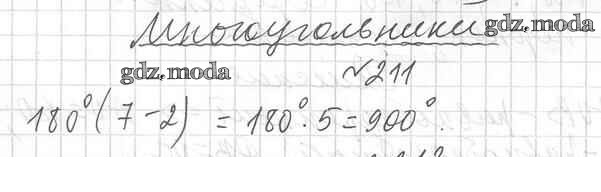 Многоугольники gdz.moda
gdz.moda №211
180°(7-2) = 180°·5=900°.